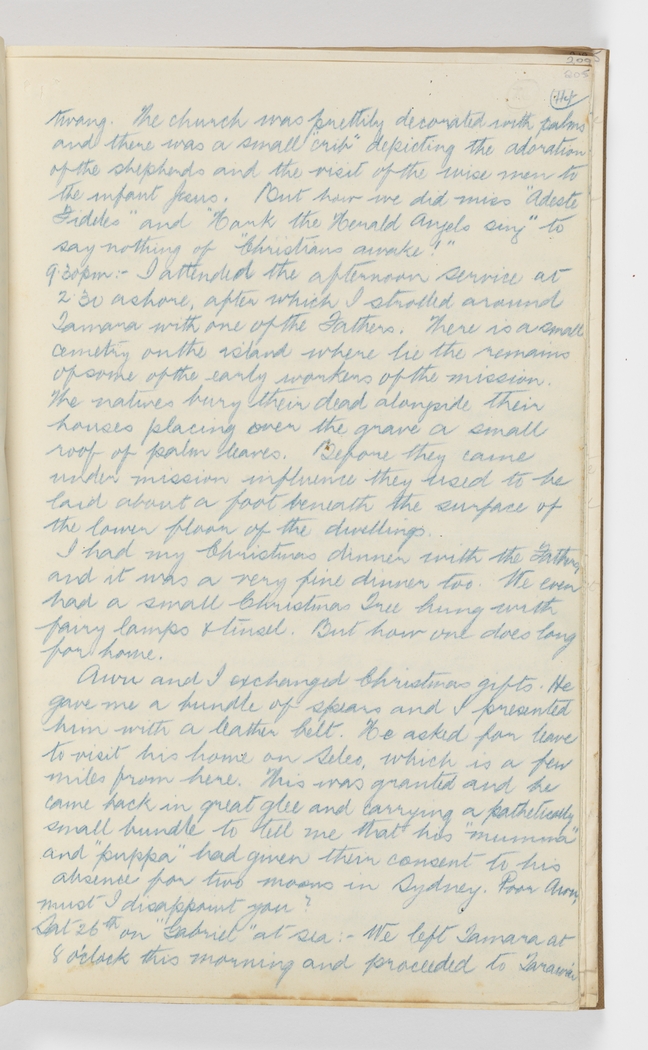 205
twang. The church was prettily decorated with palms
and there was a small "crib" depicting the adoration
of the shepherds and the visit of the wise men to
the infant Jesus. But how we did miss "Adeste
Fideles" and "Hark the Herald Angels sing" to
say nothing of "Christians awake!"
9.30pm:- I attended the afternoon service at
2.30 ashore, after which I strolled around
Tamara with one of the Fathers. There is a small
cemetry on the island where lie the remains
of some of the early workers of the mission.
The natives bury their dead alongside their
houses placing over the grave a small
roof of palm leaves. Before they came
under mission influence they used to be
laid about a foot beneath the surface of
the lower floor of the dwellings.
I had my Christmas dinner with the Fathers
and it was a very fine dinner too. We even
had a small Christmas Tree hung with
fairy lamps & tinsel. But how one does long
for home.
Awu and I exchanged Christmas gifts. He
gave me a bundle of spears and I presented
him with a leather belt. He asked for leave
to visit his home on Seleo, which is a few
miles from here. This was granted and he
came back in great glee and carrying a pathetically
small bundle to tell me that his "mumma"
and "puppa" had given their consent to his
absence for two moons in Sydney. Poor Awu,
must I disappoint you?
Sat 26th on "Gabriel" at sea:- We left Tamara at
8 o'clock this morning and proceeded to